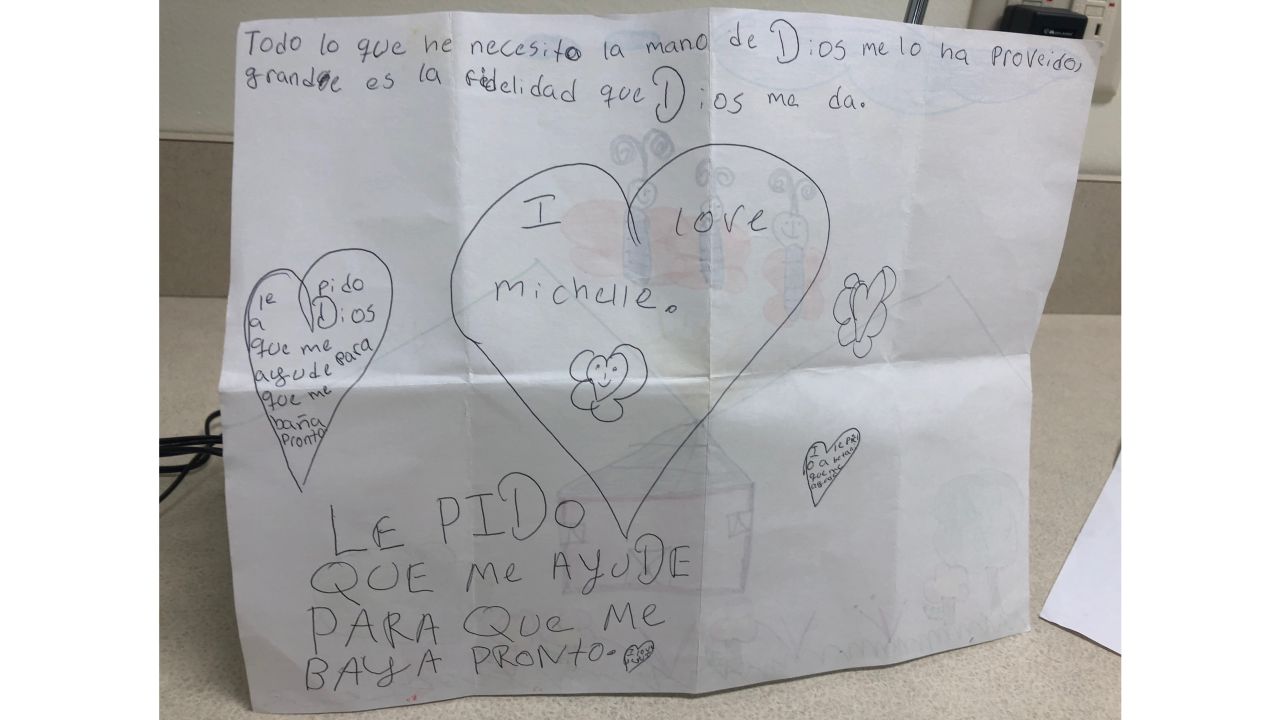 Todo lo que he necesito la mano de Dios me lo ha proveido,
grande es la fidelidad que Dios me da.
I love
michelle.
le pido
a Dios
que me
ayude para
que me
baña
pronto
I le
LE PIDO
QUE Me AYUDE
PARA QUe Me
BAYA PRONTO.